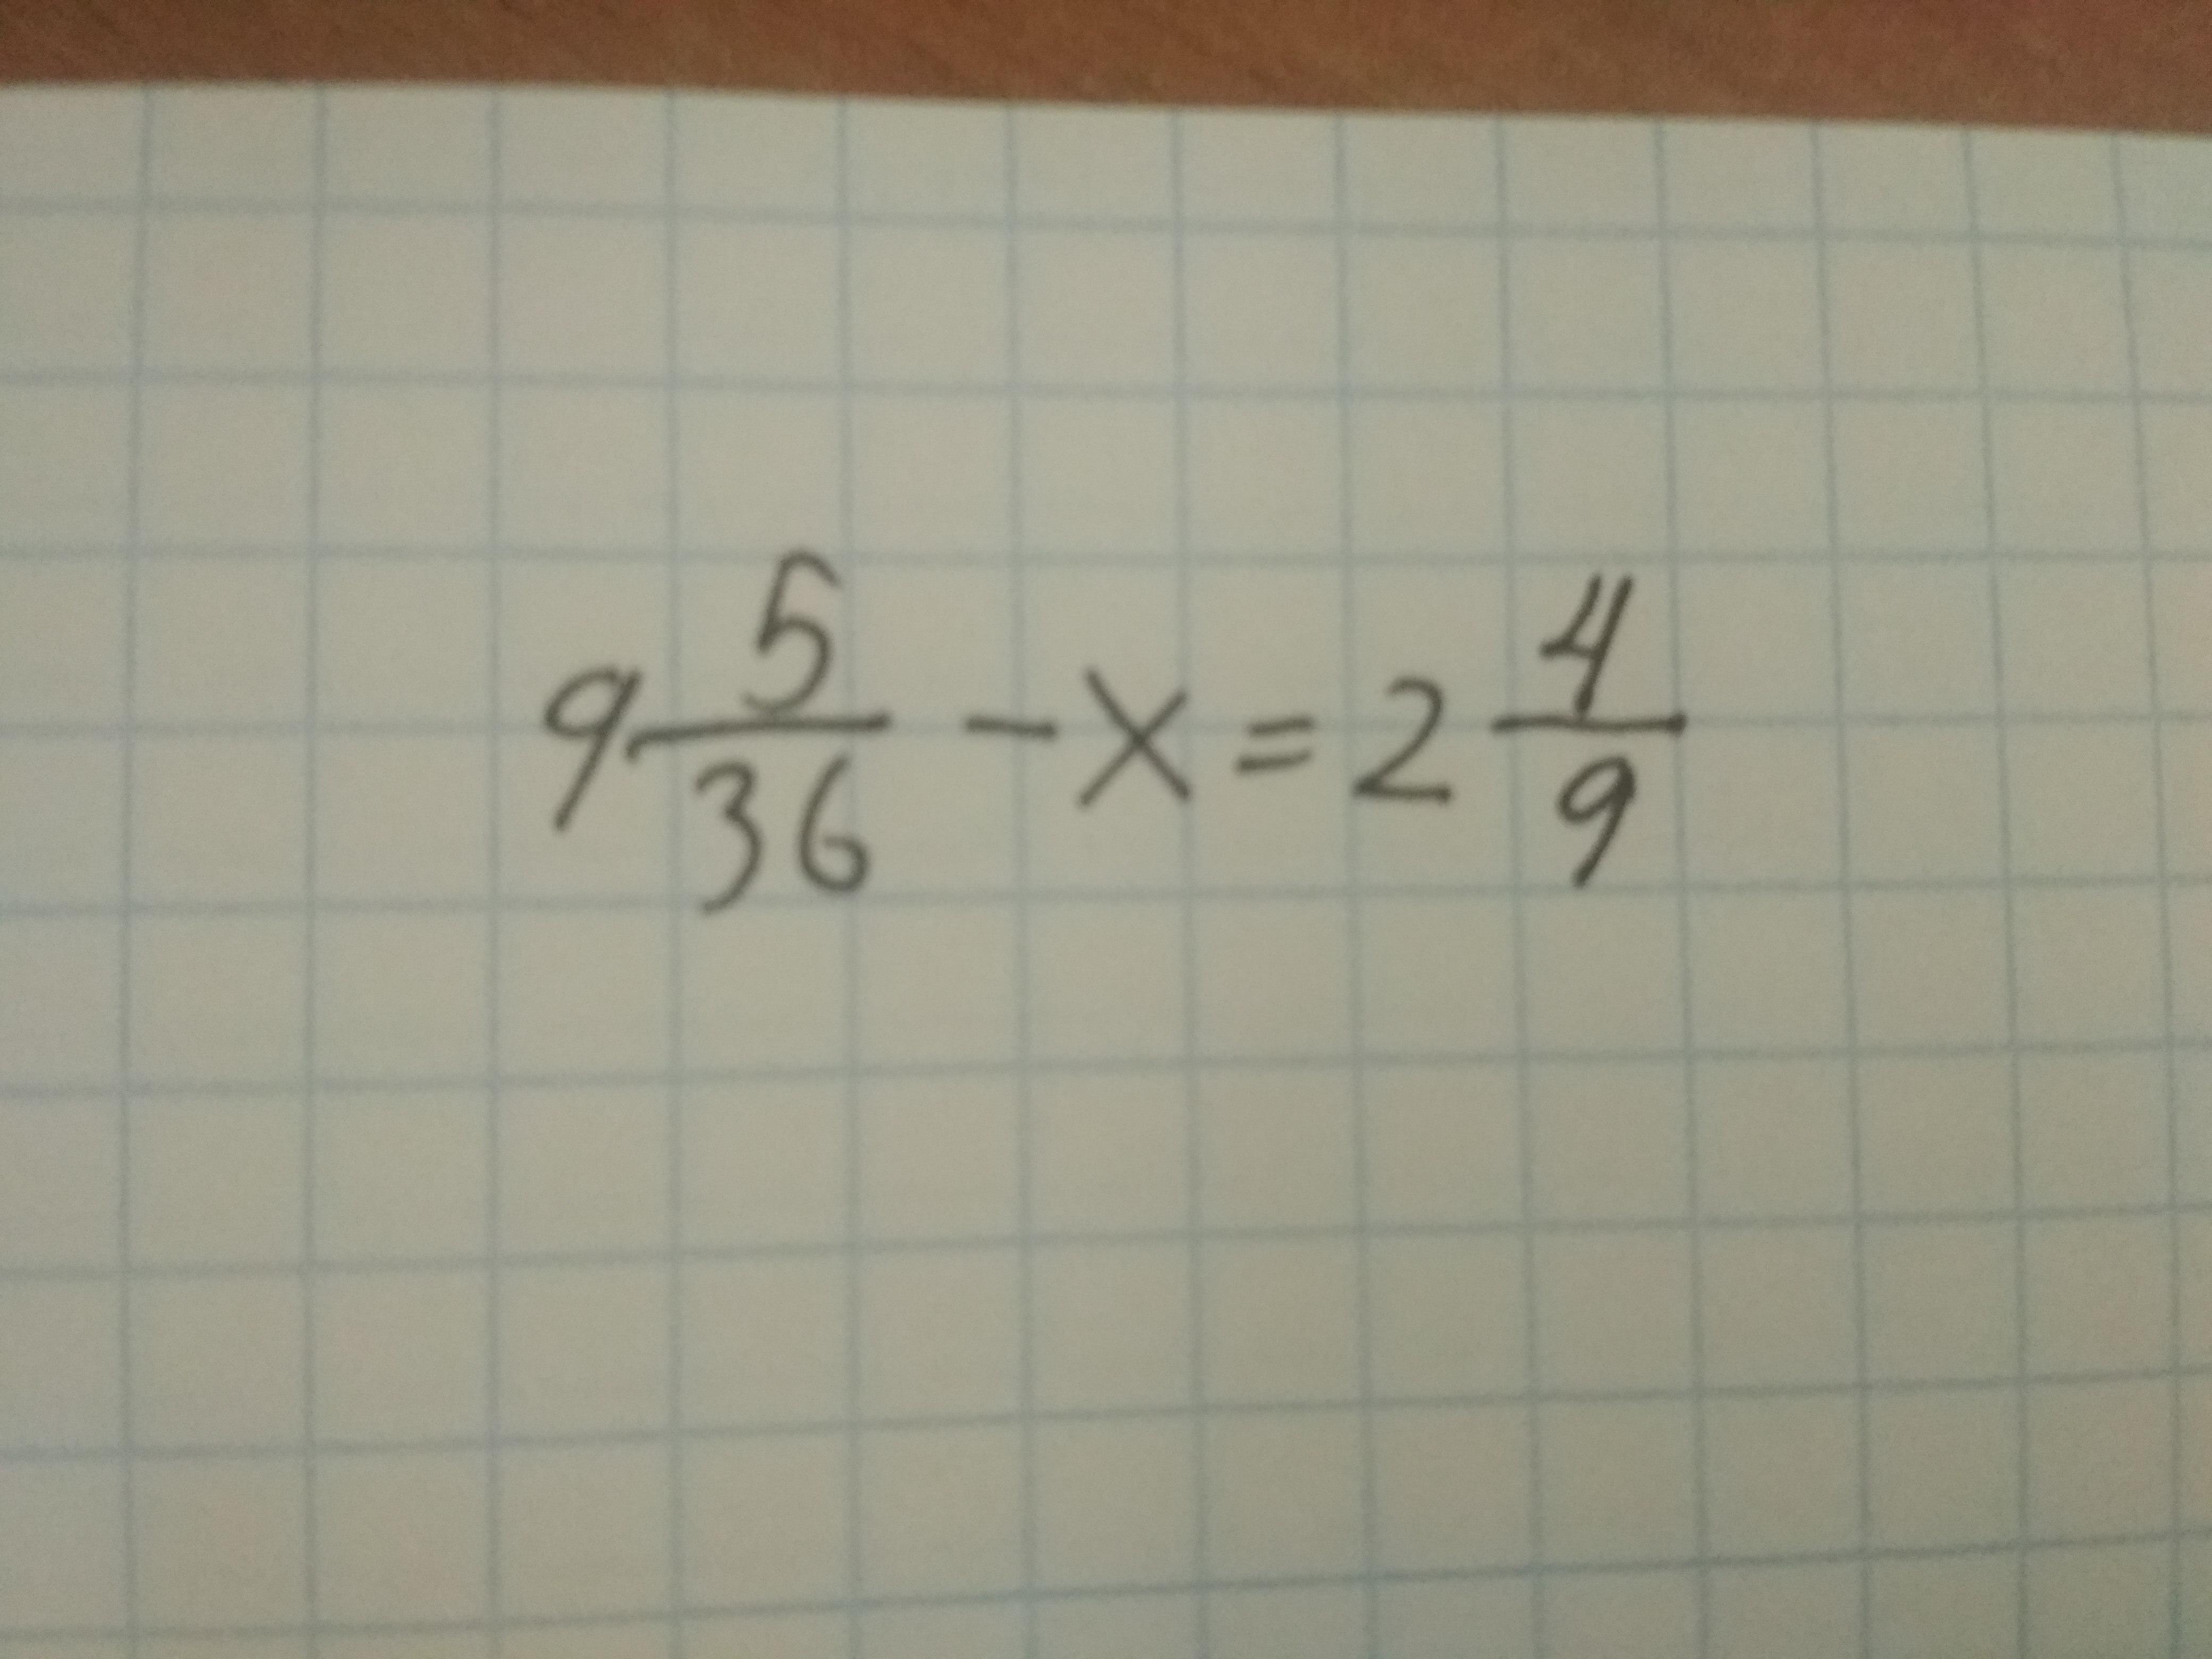 9 5/36 - x = 2 4/9